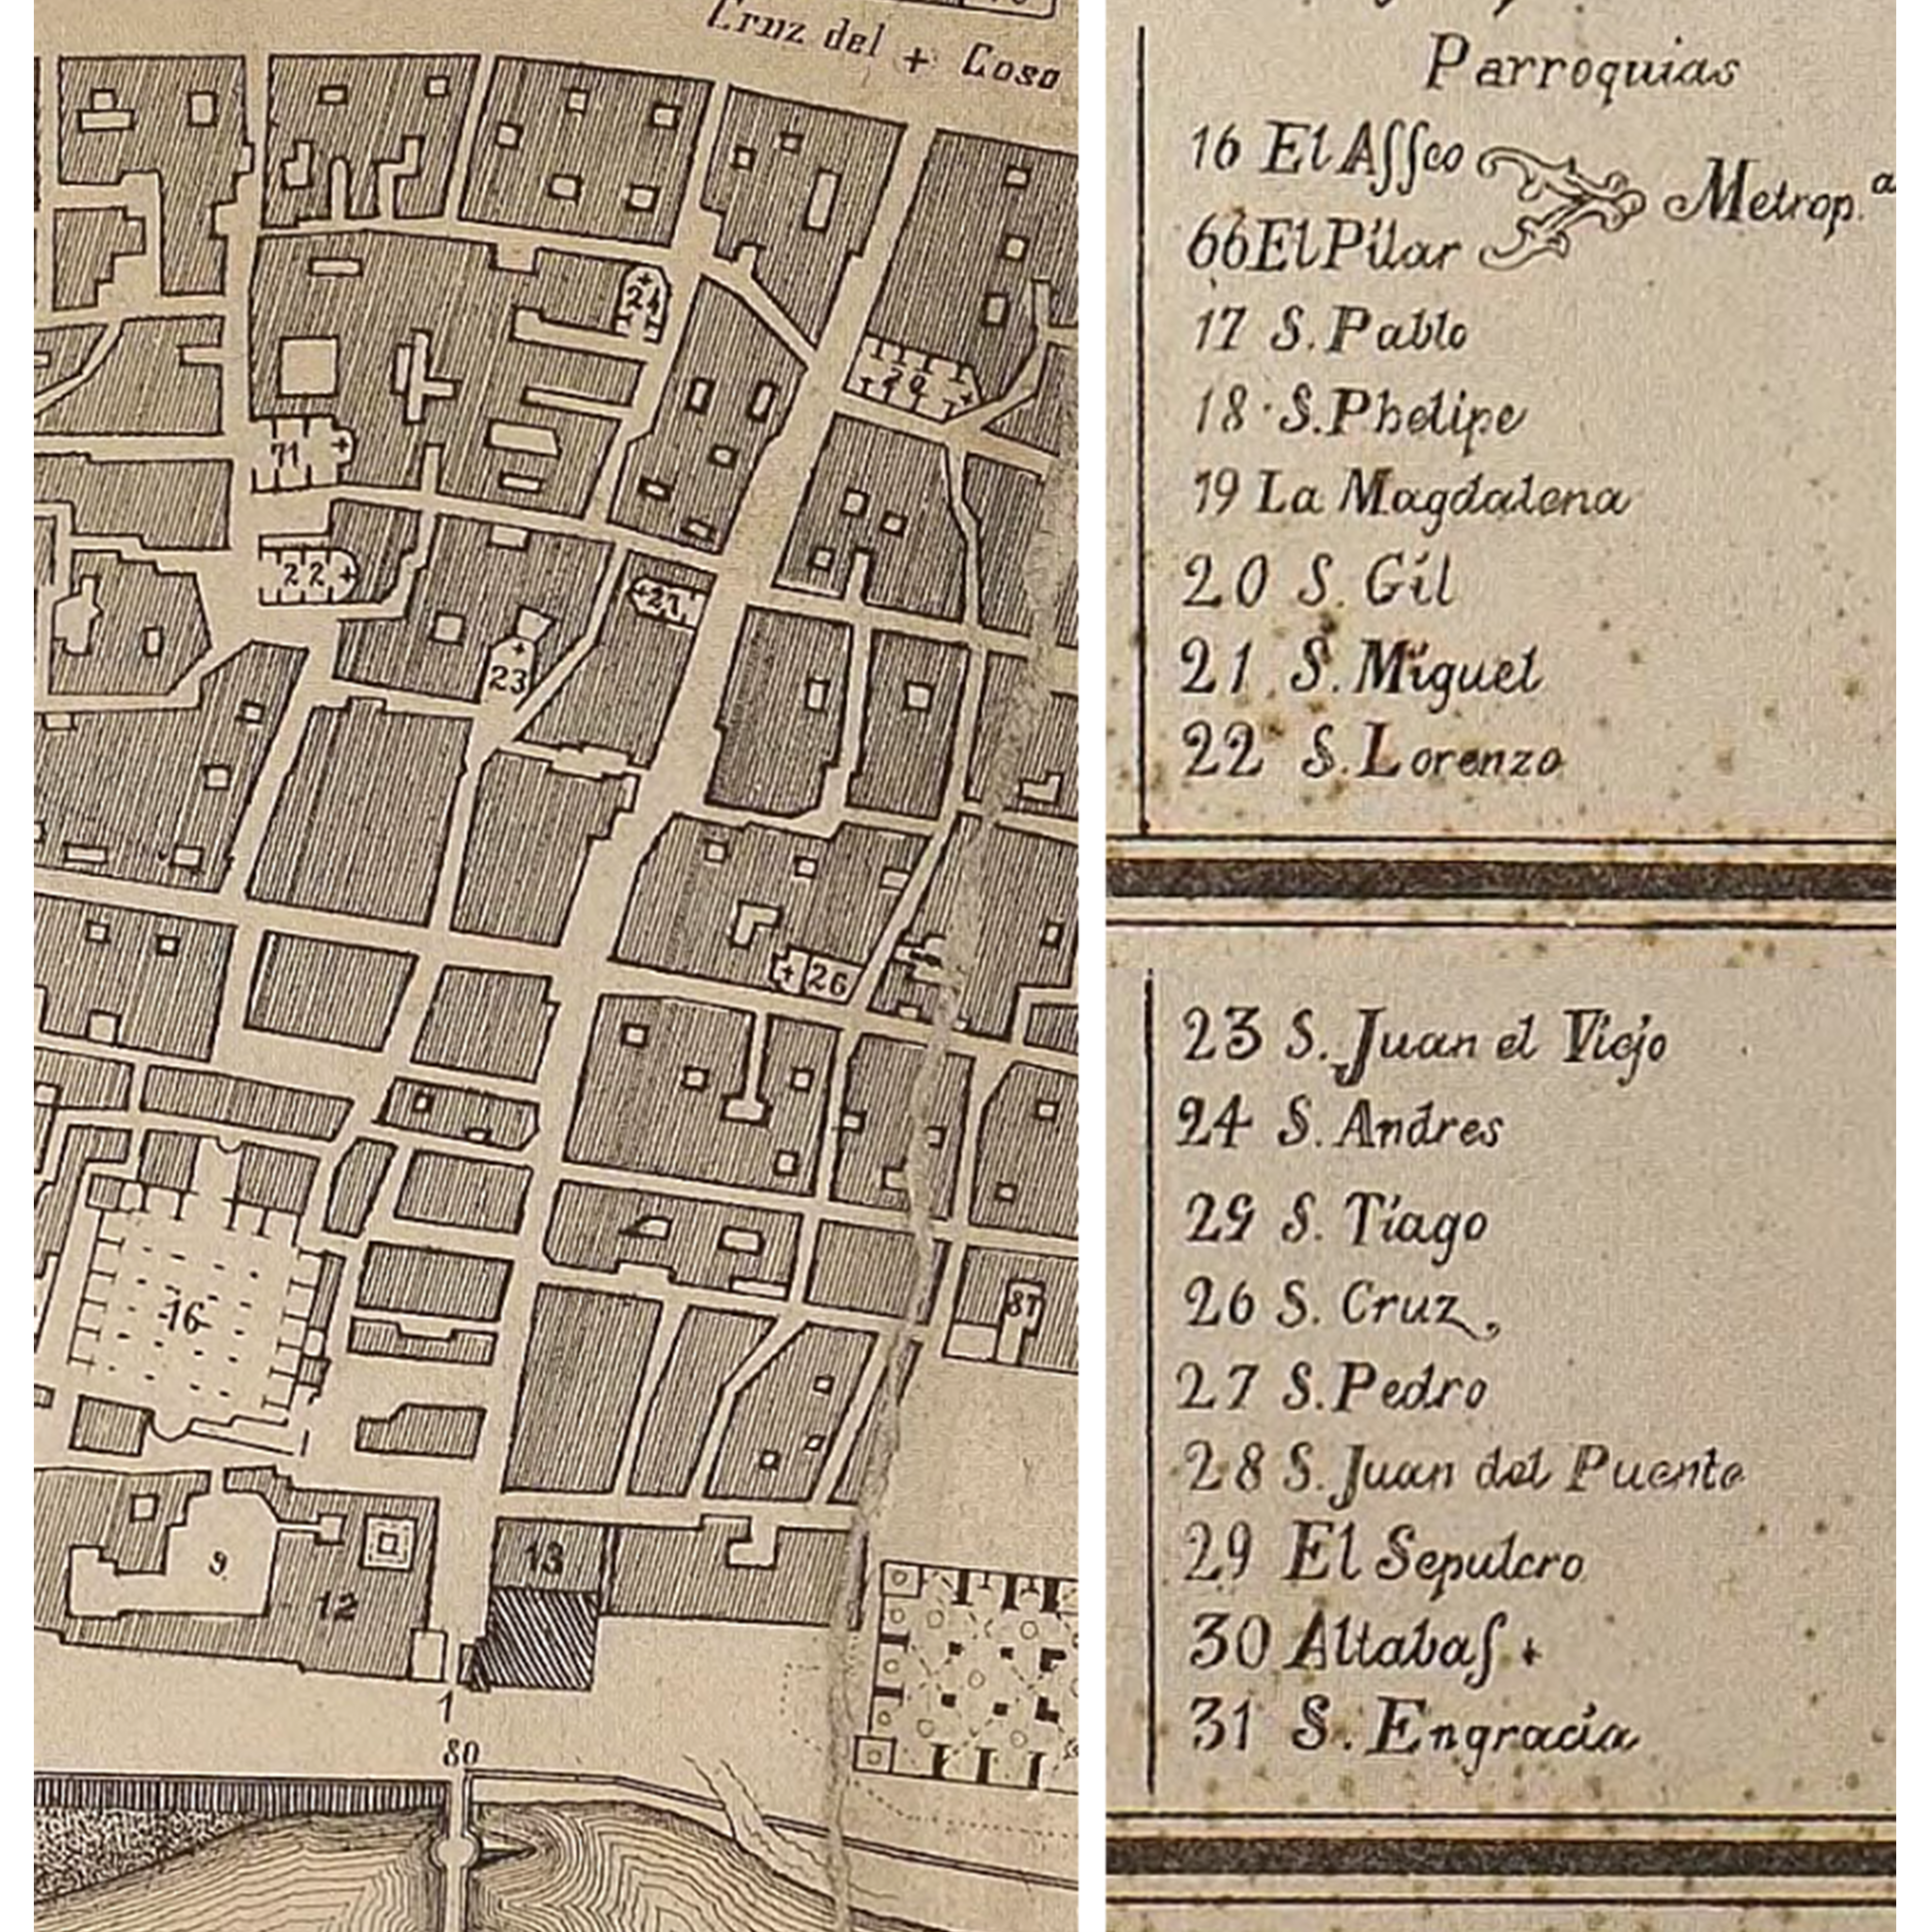 Cruz del + Coso
24
71
22
27
23
26
16
87
9
13
12
1
80
Parroquias
16 El Aſſeo
Metrop.ª
66 El Pilar
17 S. Pablo
18 · S. Phelipe
19 La Magdalena
20 S. Gil
21 S. Miguel
22 S. Lorenzo
23 S. Juan el Viejo
24 S. Andres
29 S. Tiago
26 S. Cruz
27 S. Pedro
28 S. Juan del Puente
29 El Sepulcro
30 Altabaſ +
31 S. Engracia